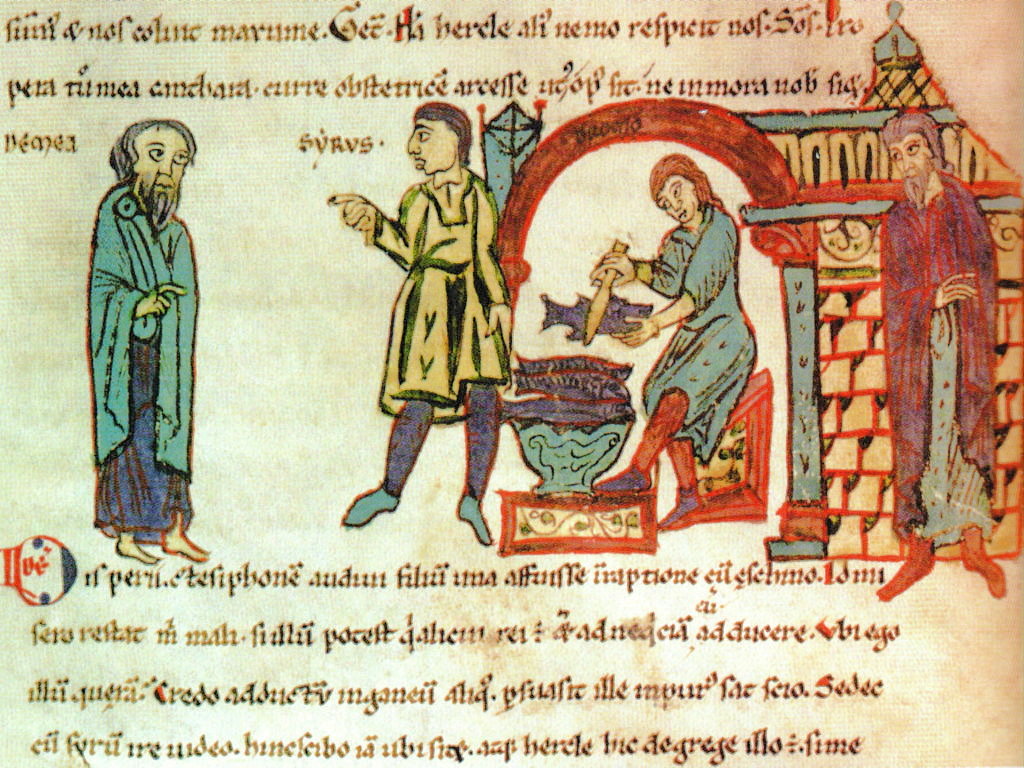 sumū & nos colunt maxume. Get. Ha hercle aliꝰ nemo respicit nos. Sos. Pro
pera tū mea canthara. curre obstetricē arcesse ut opꝰ sit. ne in mora nob siet.
DEMEA SYRUS.
Disperii. ctesiphonē audiui filiū una affuisse in raptione cū eschino. Id mi
sero restat m̄ mali. si illū potest q̄ alicui rei ē & ad neq̄ciā adducere. Vbi ego
illū querā. Credo adductū in ganeū aliq̄. psuasit ille impurꝰ sat scio. Sed ec
cū syrū ire uideo. hinc scibo iā ubi siet. atq hercle hic de grege illo ē. si me